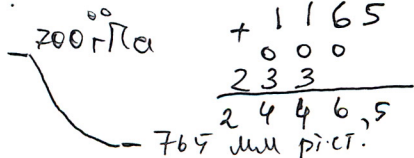 700 гПа
+ 1165
000
233
2446,5
765 мм рт.ст.